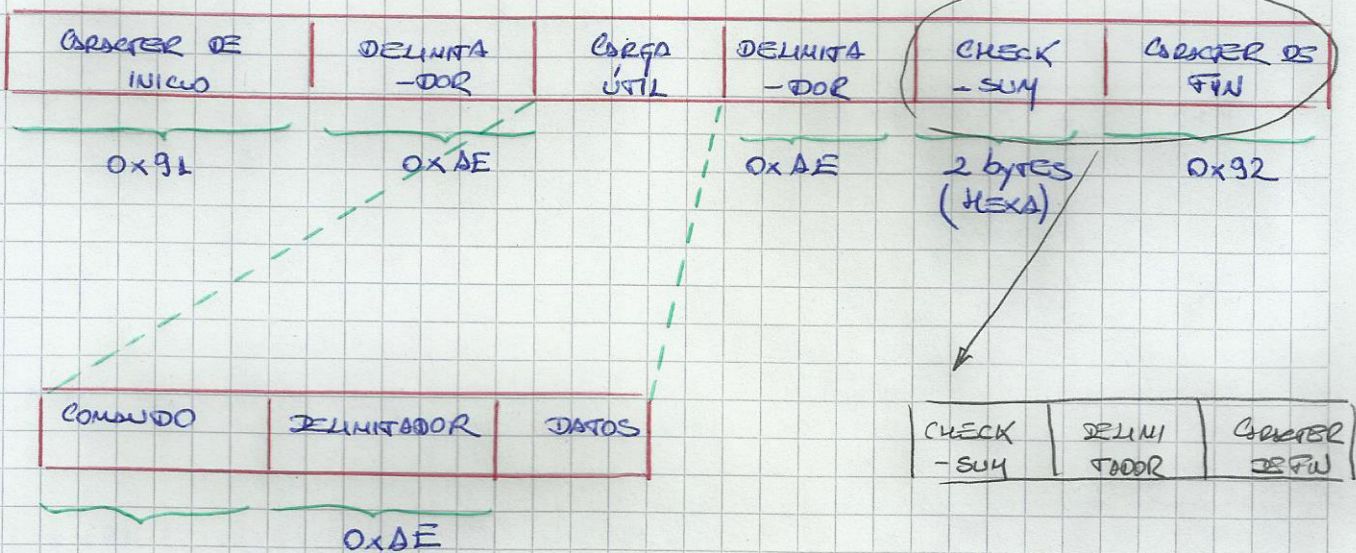 CARACTER DE
INICIO
DELIMITA
-DOR
CARGA
ÚTIL
DELIMITA
-DOR
CHECK
-SUM
CARACTER DE
FIN
0x91
0xAE
0xAE
2 bytes
(HEXA)
0x92
COMANDO
DELIMITADOR
DATOS
0xAE
CHECK
-SUM
DELIMI
TADOR
CARACTER
DE FIN